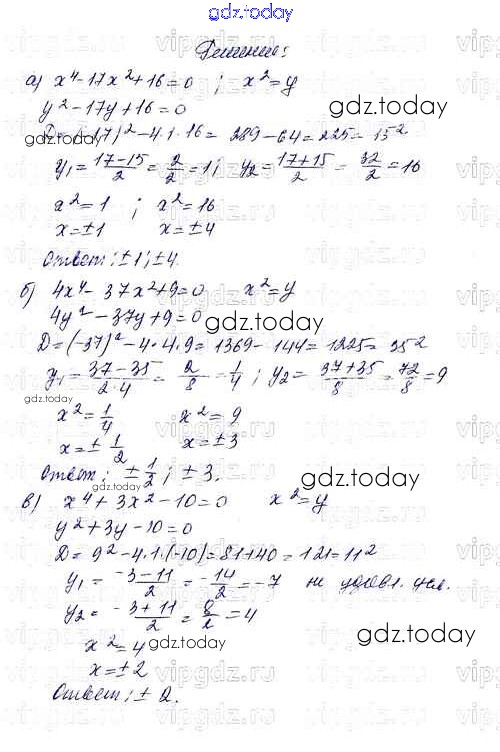 gdz.today
Решение:
а) x⁴-17x²+16=0 ; x²=y
y²-17y+16=0
D=(-17)²-4·1·16= 289-64=225=15²
y₁=(17-15)/2=2/2=1; y₂=(17+15)/2=32/2=16
x²=1 ; x²=16
x=±1 x=±4
Ответ: ±1; ±4.
б) 4x⁴-37x²+9=0 x²=y
4y²-37y+9=0
D=(-37)²-4·4·9=1369-144=1225=35²
y₁=(37-35)/(2·4)=2/8=1/4; y₂=(37+35)/8=72/8=9
x²=1/4 x²=9
x=±1/2 x=±3
Ответ: ±1/2; ±3.
в) x⁴+3x²-10=0 x²=y
y²+3y-10=0
D=9²-4·1·(-10)=81+40=121=11²
y₁=(-3-11)/2=-14/2=-7 не удовл. усл.
y₂=(-3+11)/2=8/2=4
x²=4
x=±2
Ответ: ±2.
gdz.today